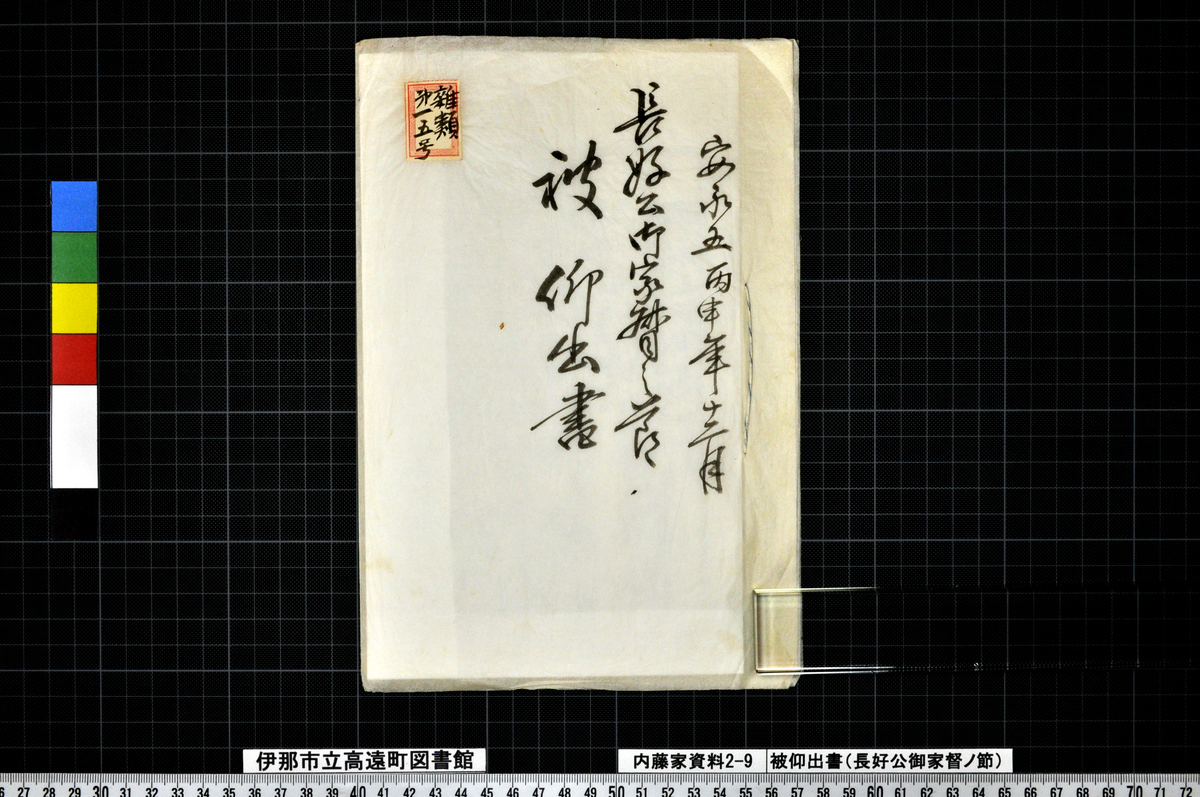 安永五丙申年十二月
長好公御家督之節
被 仰出書
雜類
第一五号
伊那市立高遠町図書館
内藤家資料2-9
被仰出書(長好公御家督ノ節)
6 27 28 29 30 31 32 33 34 35 36 37 38 39 40 41 42 43 44 45 46 47 48 49 50 51 52 53 54 55 56 57 58 59 60 61 62 63 64 65 66 67 68 69 70 71 72